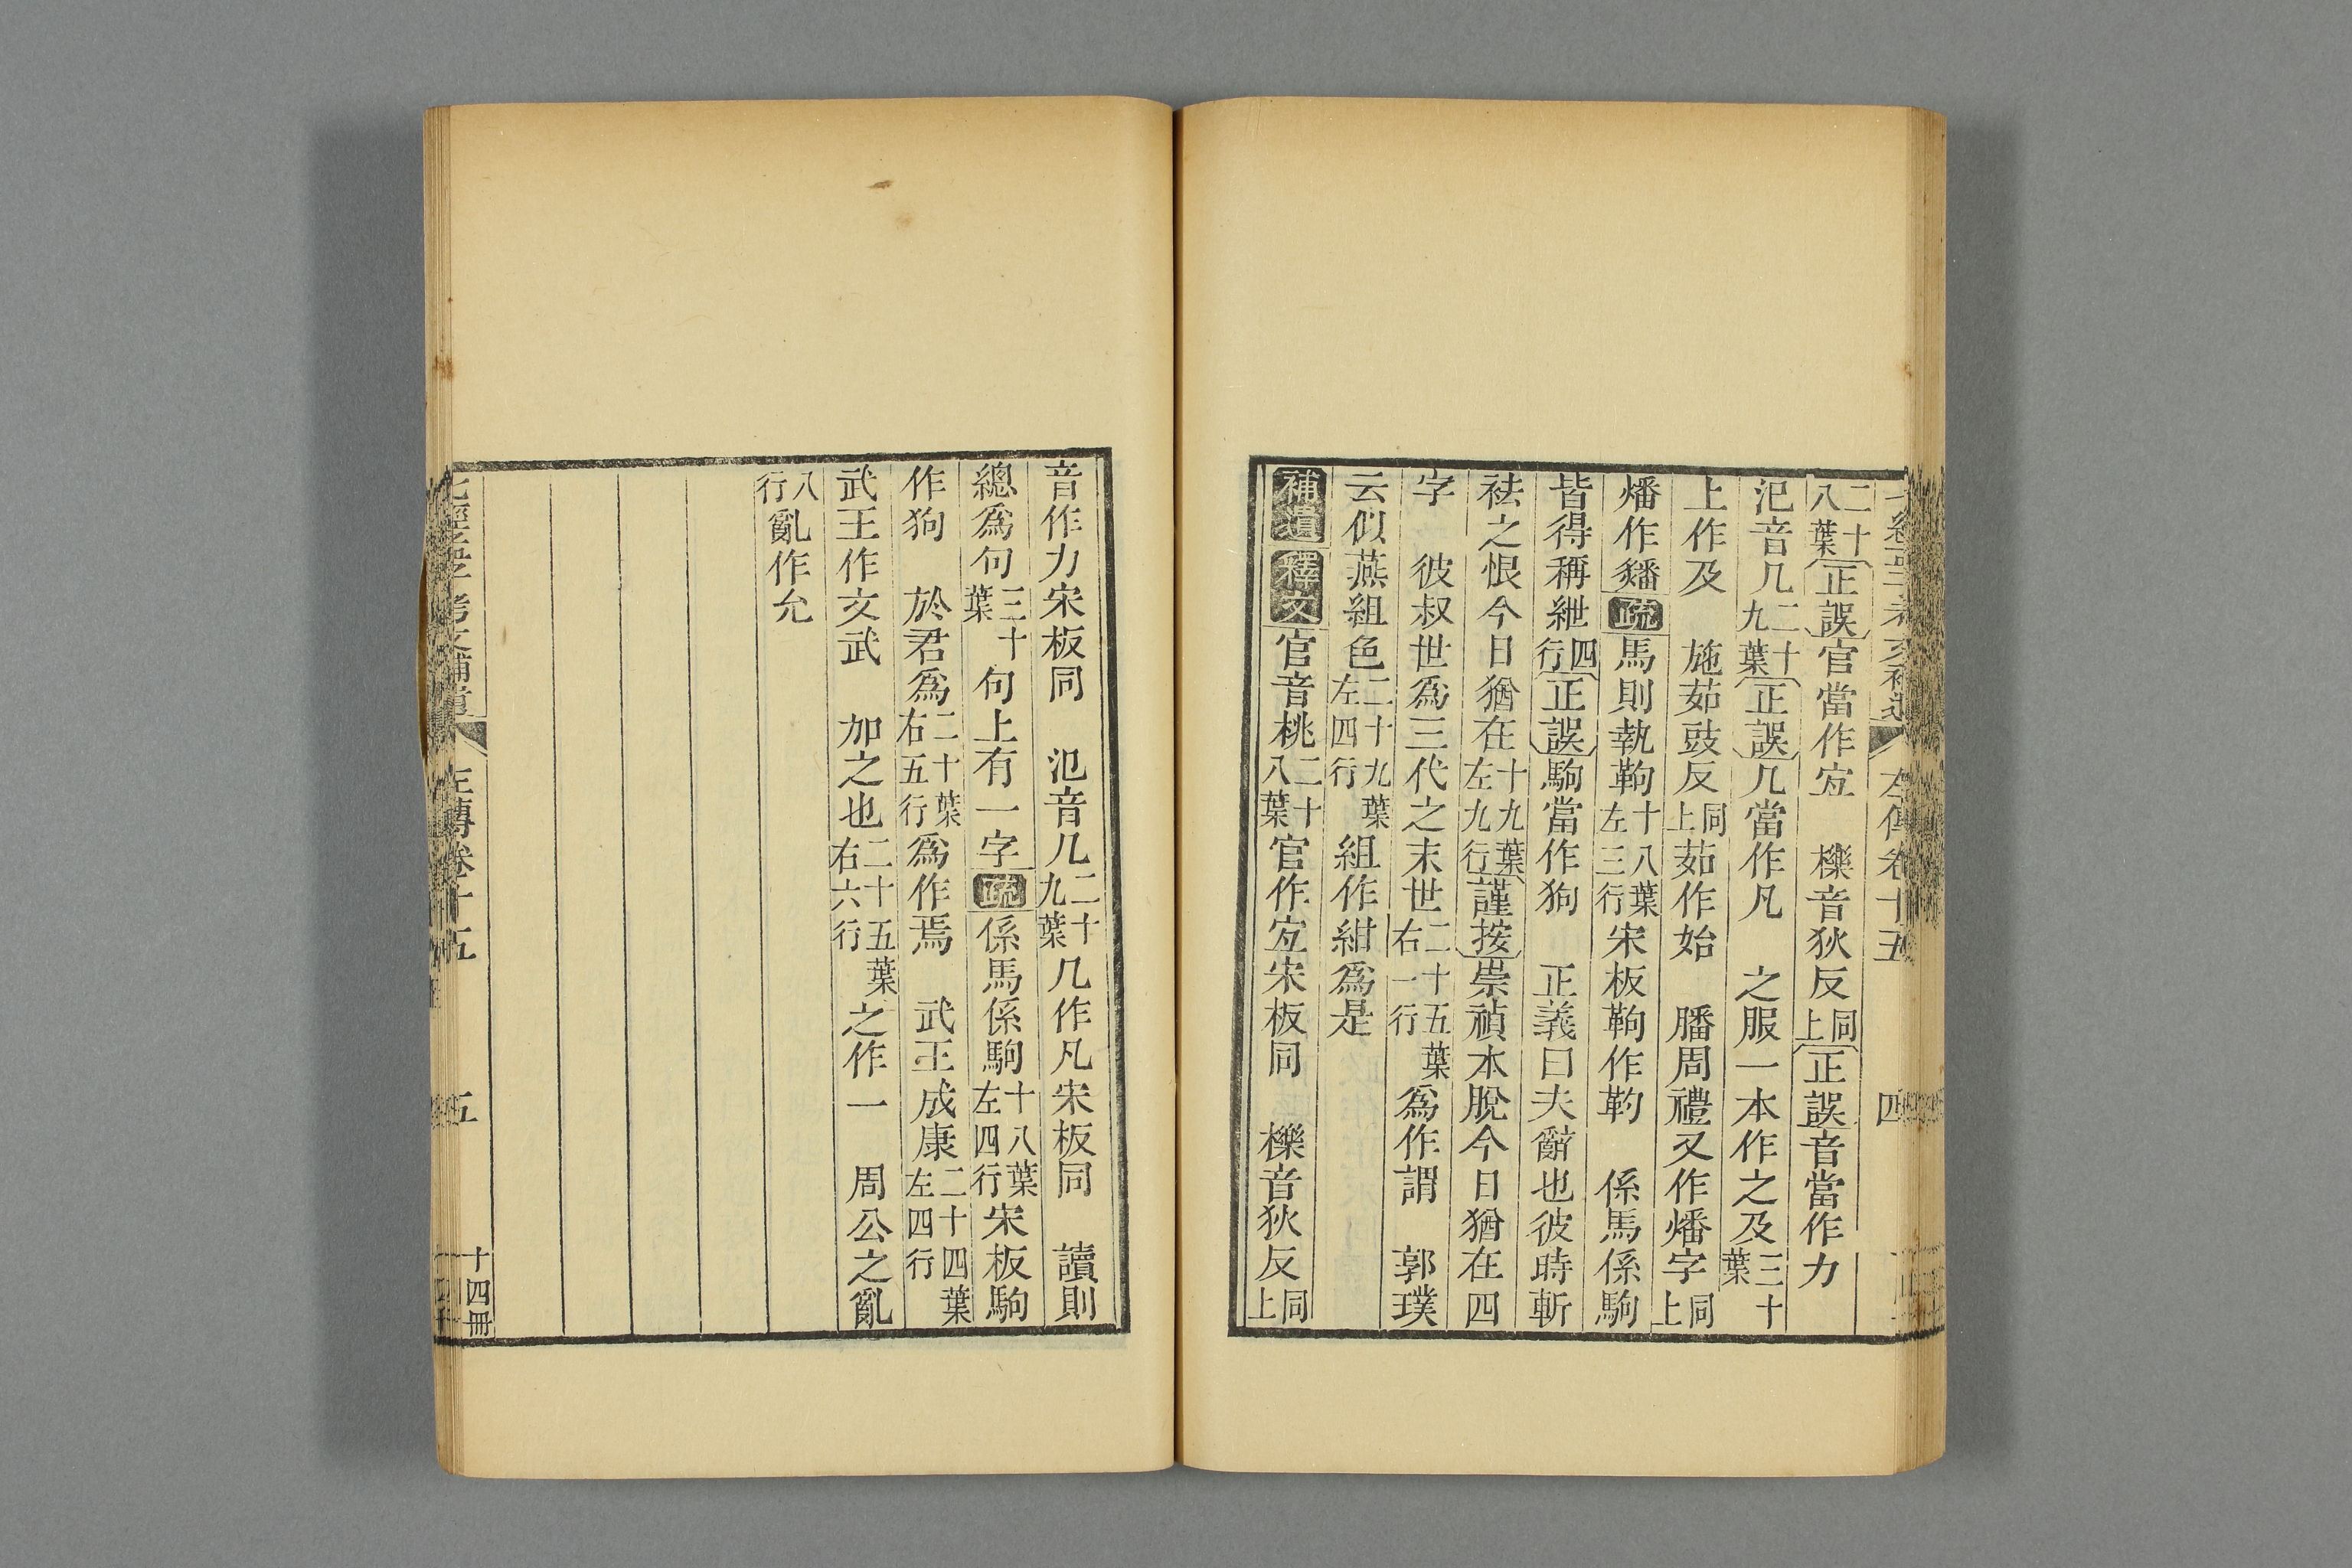 二十八葉正誤官當作宐　櫟音狄反同上正誤音當作力
氾音几二十九葉正誤几當作凡　之服一本作之及三十葉
上作及　施茹豉反同上茹作始　膰周禮又作燔字同上
燔作𤑔疏馬則執鞫十八葉左三行宋板鞫作靮　係馬係駒
皆得稱紲四行正誤駒當作狗　正義曰夫辭也彼時斬
袪之恨今日猶在十九葉左九行謹按崇禎本脫今日猶在四
字　彼叔世爲三代之末世二十五葉右一行爲作謂　郭璞
云似燕組色二十九葉左四行組作紺爲是
補遺釋文官音桃二十八葉官作宐宋板同　櫟音狄反同上
音作力宋板同　氾音几二十九葉几作凡宋板同　讀則
總爲句三十葉句上有一字疏係馬係駒十八葉左四行宋板駒
作狗　於君爲二十葉右五行爲作焉　武王成康二十四葉左四行
武王作文武　加之也二十五葉右六行之作一　周公之亂
八行亂作允
左傳卷十五
五
十四冊
左傳卷十五
四